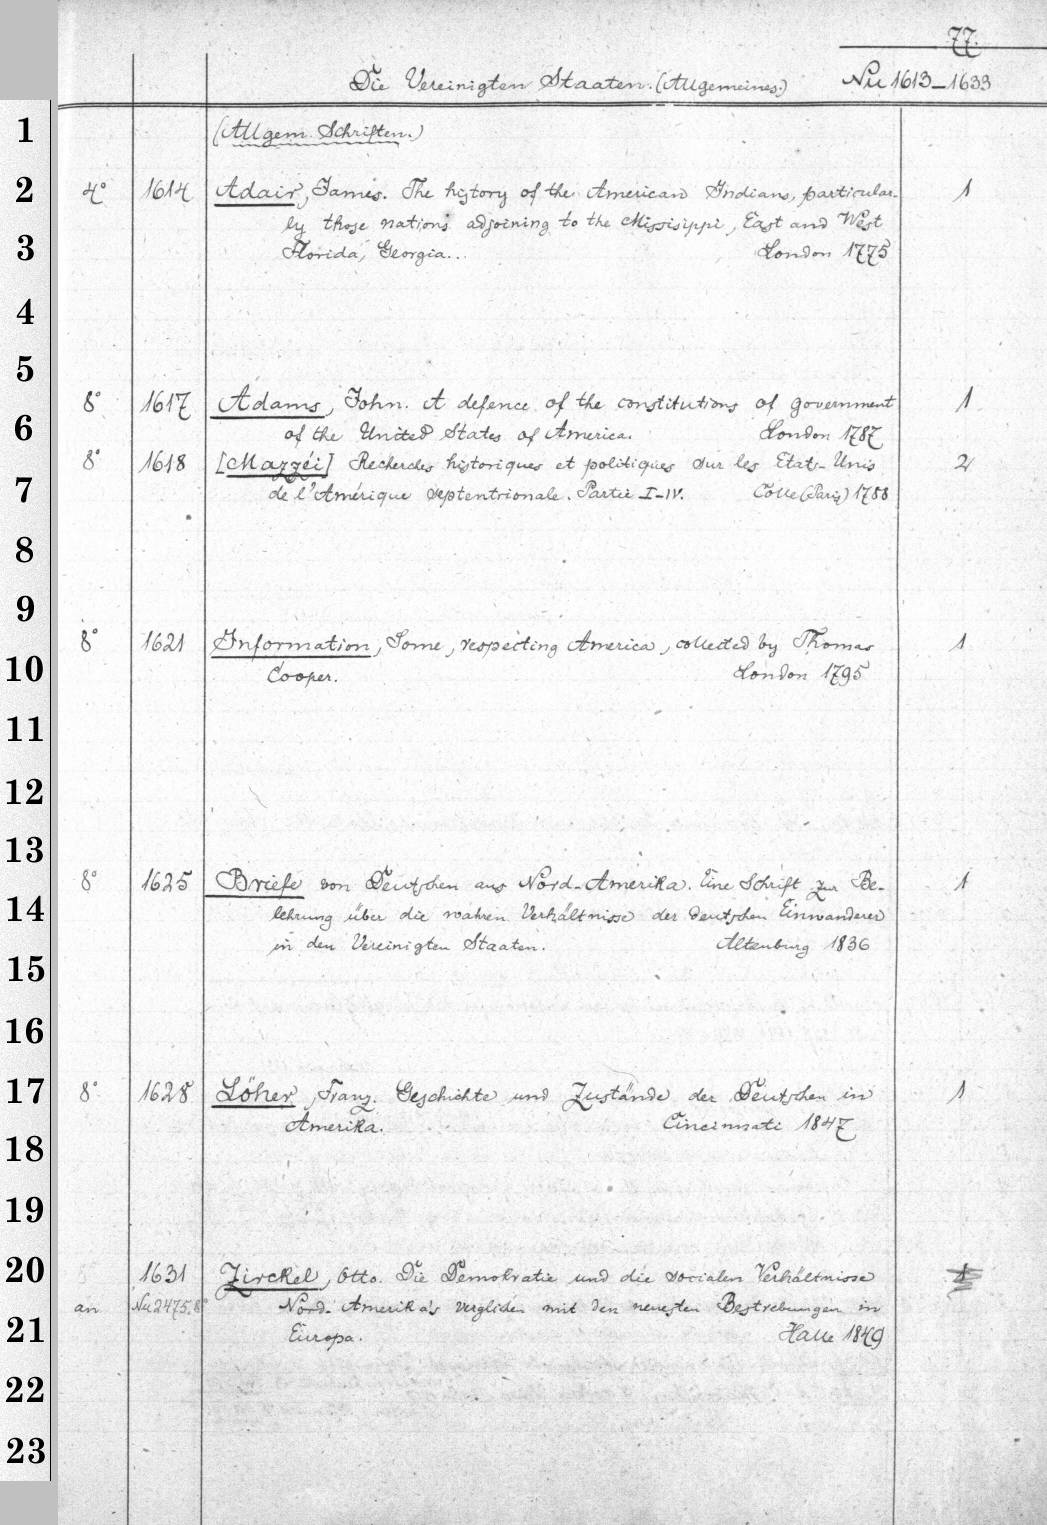 77.
Die Vereinigten Staaten. (Allgemeines.) Nu 1613-1633
1 (Allgem. Schriften.)
2 4° 1614 Adair, James. The history of the American Indians, particular- 1
ly those nations adjoining to the Mississippi, East and West
3 Florida, Georgia... London 1775
4
5
8° 1617 Adams, John. A defence of the constitutions of government 1
6 of the United States of America. London 1787
8° 1618 [Mazzéi] Recherches historiques et politiques sur les Etats-Unis 2
7 de l'Amérique septentrionale. Partie I-IV. Colle (Paris) 1788
8
9
8° 1621 Information, Some, respecting America, collected by Thomas 1
10 Cooper. London 1795
11
12
13
8° 1625 Briefe von Deutschen aus Nord-Amerika. Eine Schrift zur Be- 1
14 lehrung über die wahren Verhältnisse der deutschen Einwanderer
in den Vereinigten Staaten. Altenburg 1836
15
16
17 8° 1628 Löher, Franz. Geschichte und Zustände der Deutschen in 1
Amerika. Cincinnati 1847
18
19
20 1631 Zirckel, Otto. Die Demokratie und die socialen Verhältnisse 1
an Nu 2475.8° Nord-Amerika's verglichen mit den neuesten Bestrebungen in
21 Europa. Halle 1849
22
23